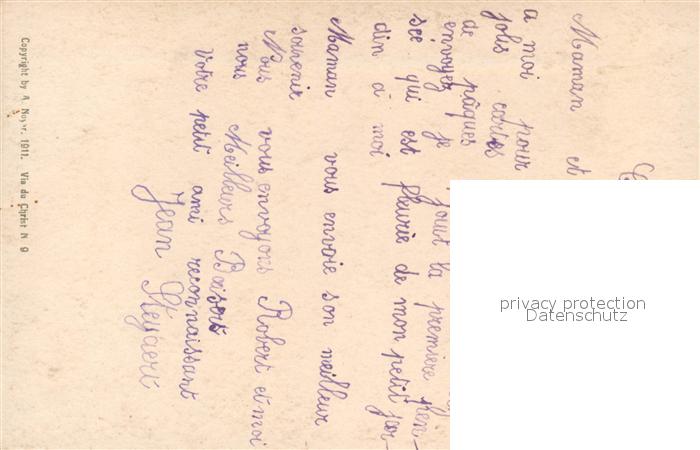 Maman et
a moi pour
jolis cartes
de pâques
envoyez je joint la première pen-
sée qui est fleurie de mon petit jar-
din à moi
Maman vous envoie son meilleur
souvenir
Nous vous envoyons Robert et moi
nous Meilleurs Baisers
Votre petit ami reconnaissant
Jean Steyaert
Copyright by A. Noyer, 1911. Vie du Christ N 9
privacy protection
Datenschutz